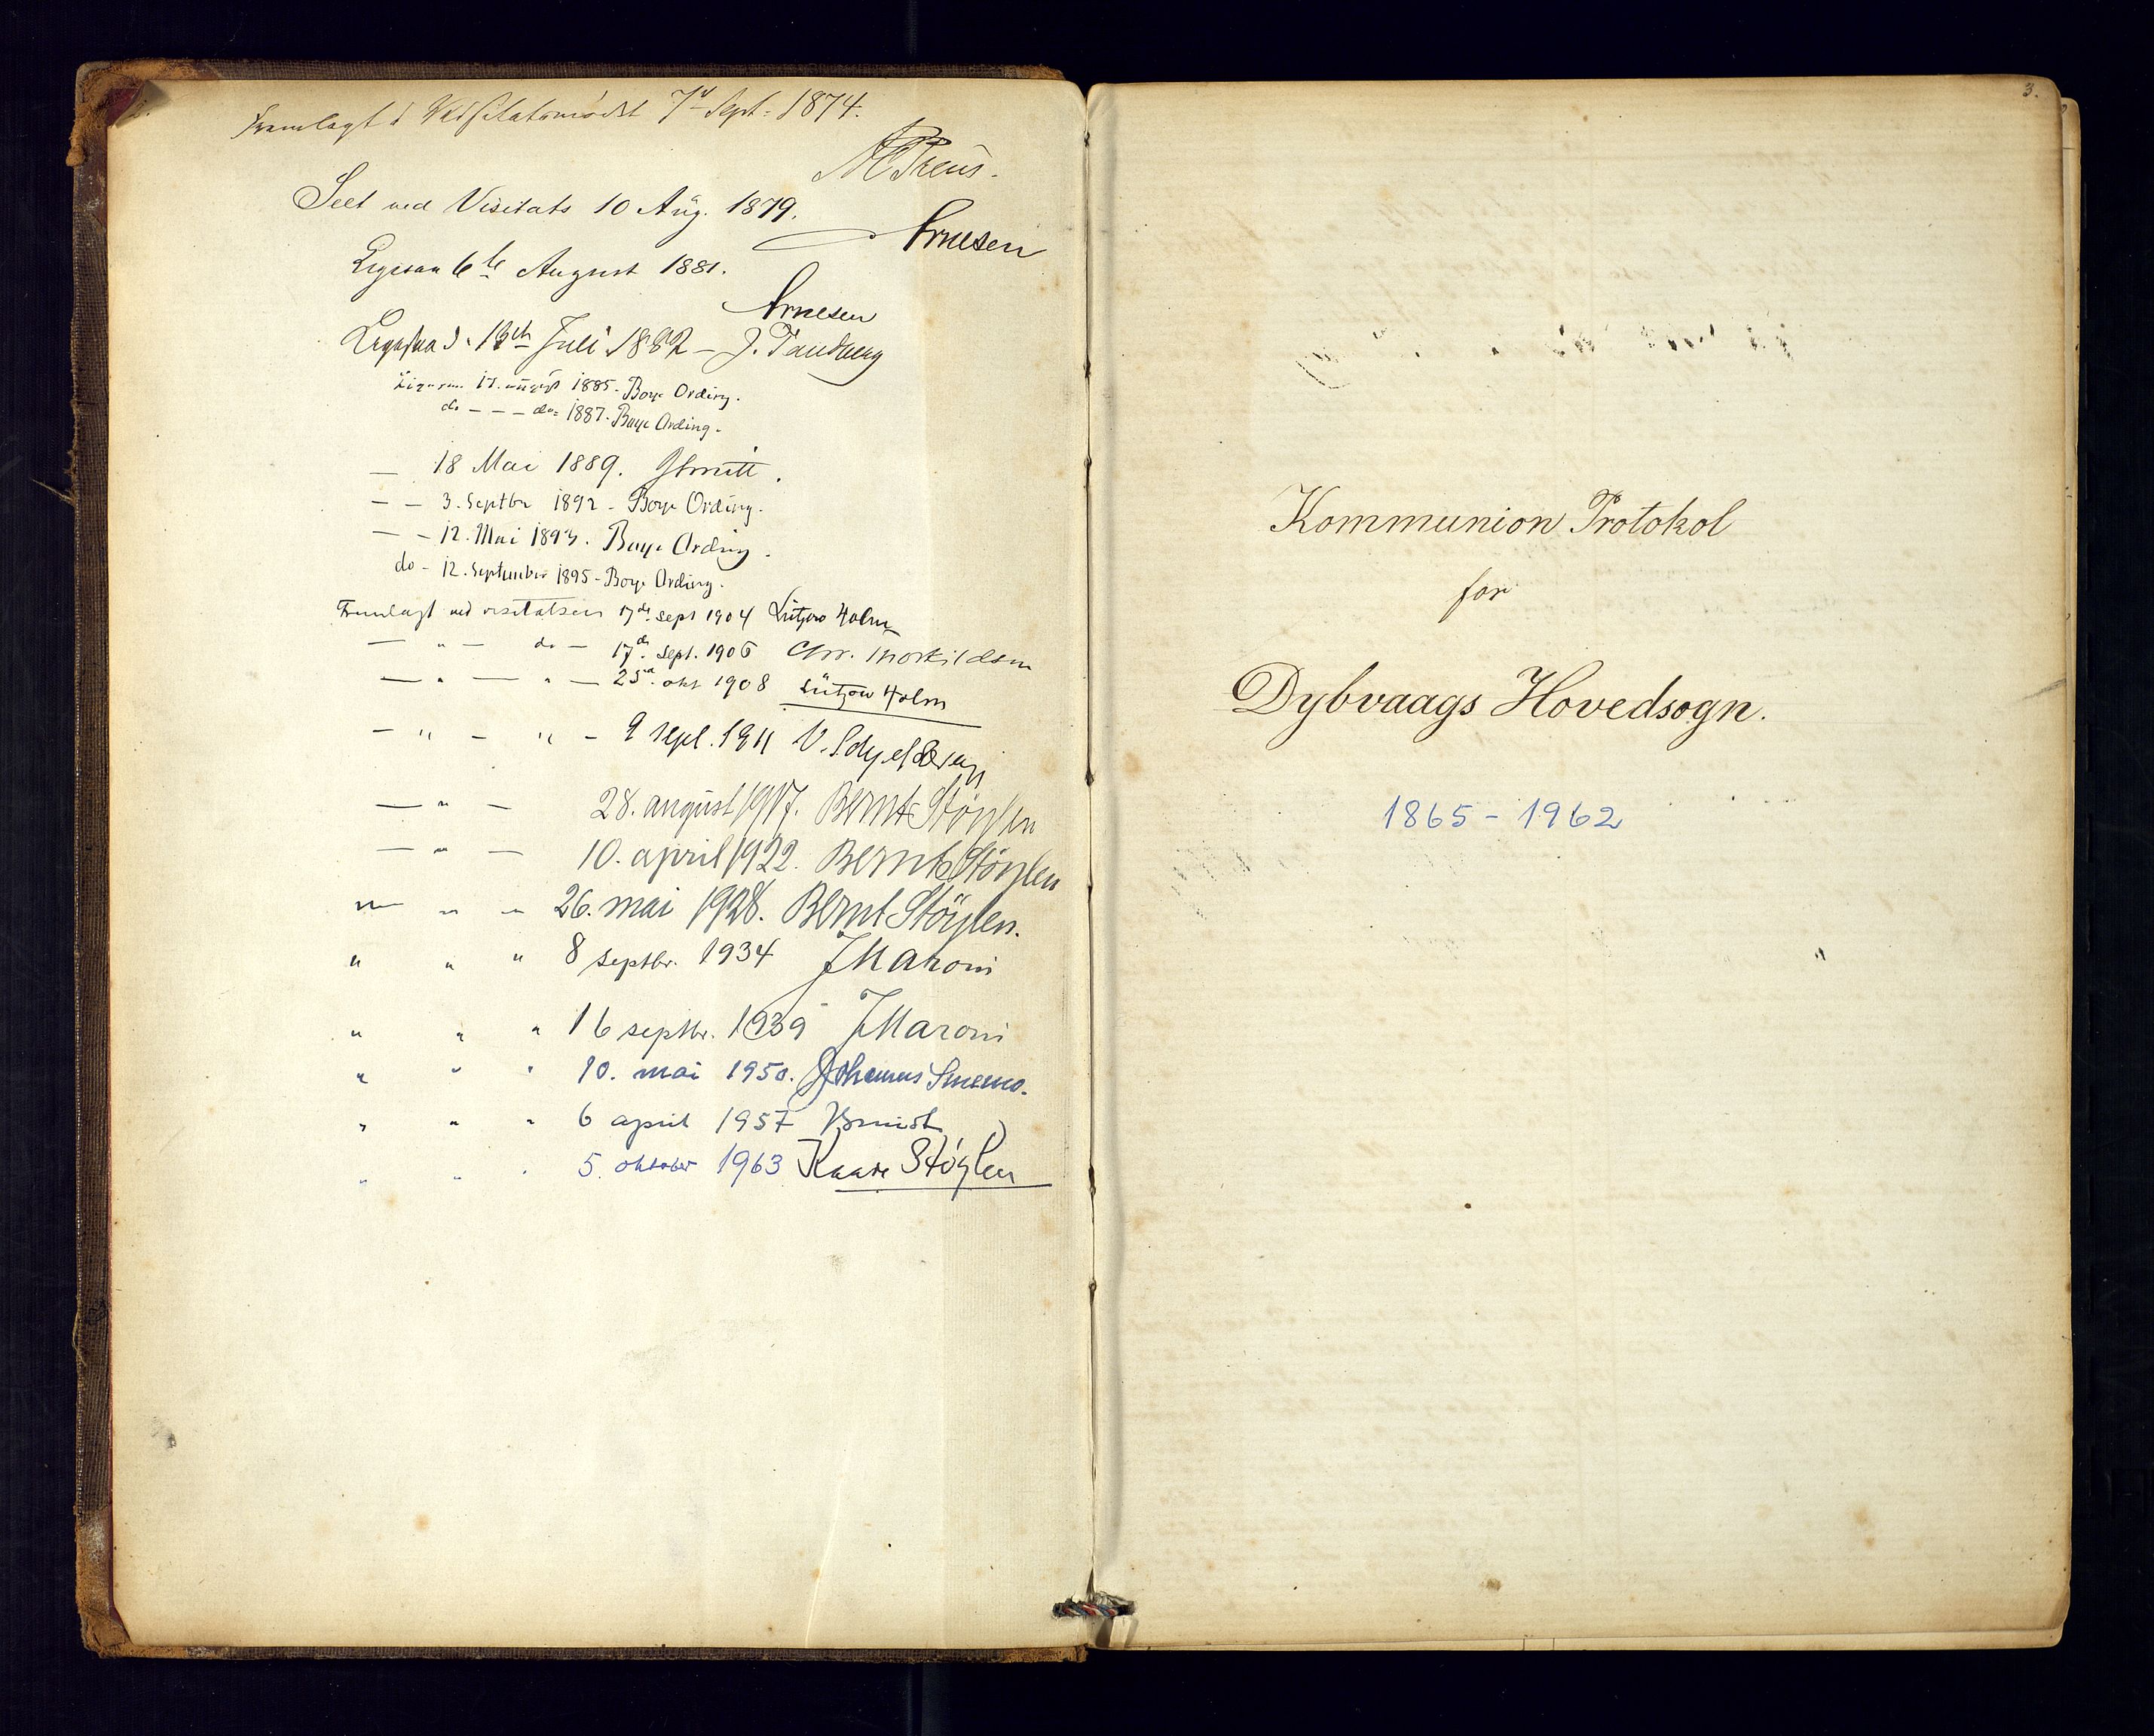 Fremlagt i Visitatsmødet 7de Sept: 1874.
Seet ved Visitats 10 Aug. 1879.
Arnesen
Ligesaa 6te August 1881.
Arnesen
Ligesaa d. 16de Juli 1882 – J. Tandberg
Ligesaa 17. august 1885 - Boye Ording.
do - - - do: 1887. Boye Ording.
— 18 Mai 1889.
— — 3. Septbr 1892 - Boye Ording.
— — 12. Mai 1893. Boye Ording.
do - 12. September 1895 - Boye Ording.
Fremlagt ved visitatsen 17de sept 1904 Lützow Holm
— " — do — 17de sept. 1906 Chr. Thorkildsen
— " — " — 25de okt 1908 Lützow Holm
— " — " — 9 sept. 1911 V.
— " — 28. august 1917. Bernt Støylen
— " — 10. april 1922. Bernt Støylen
— " — 26. mai 1928. Bernt Støylen.
" " " 8 septbr. 1934 J Maroni
" " " 16 septbr. 1939 J Maroni
" " " 10. mai 1950. Johannes Smemo.
" " " 6 april 1957
" " " 5. oktober 1963 Kaare Støylen
3.
Kommunion Protokol
for
Dybvaags Hovedsogn.
1865 - 1962